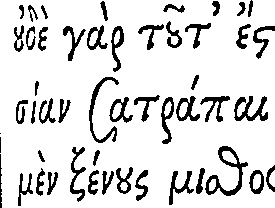 οὐδὲ γὰρ τοῦτ' ἔς
σίαν Σατράπαι
μὲν ξένους μισθος